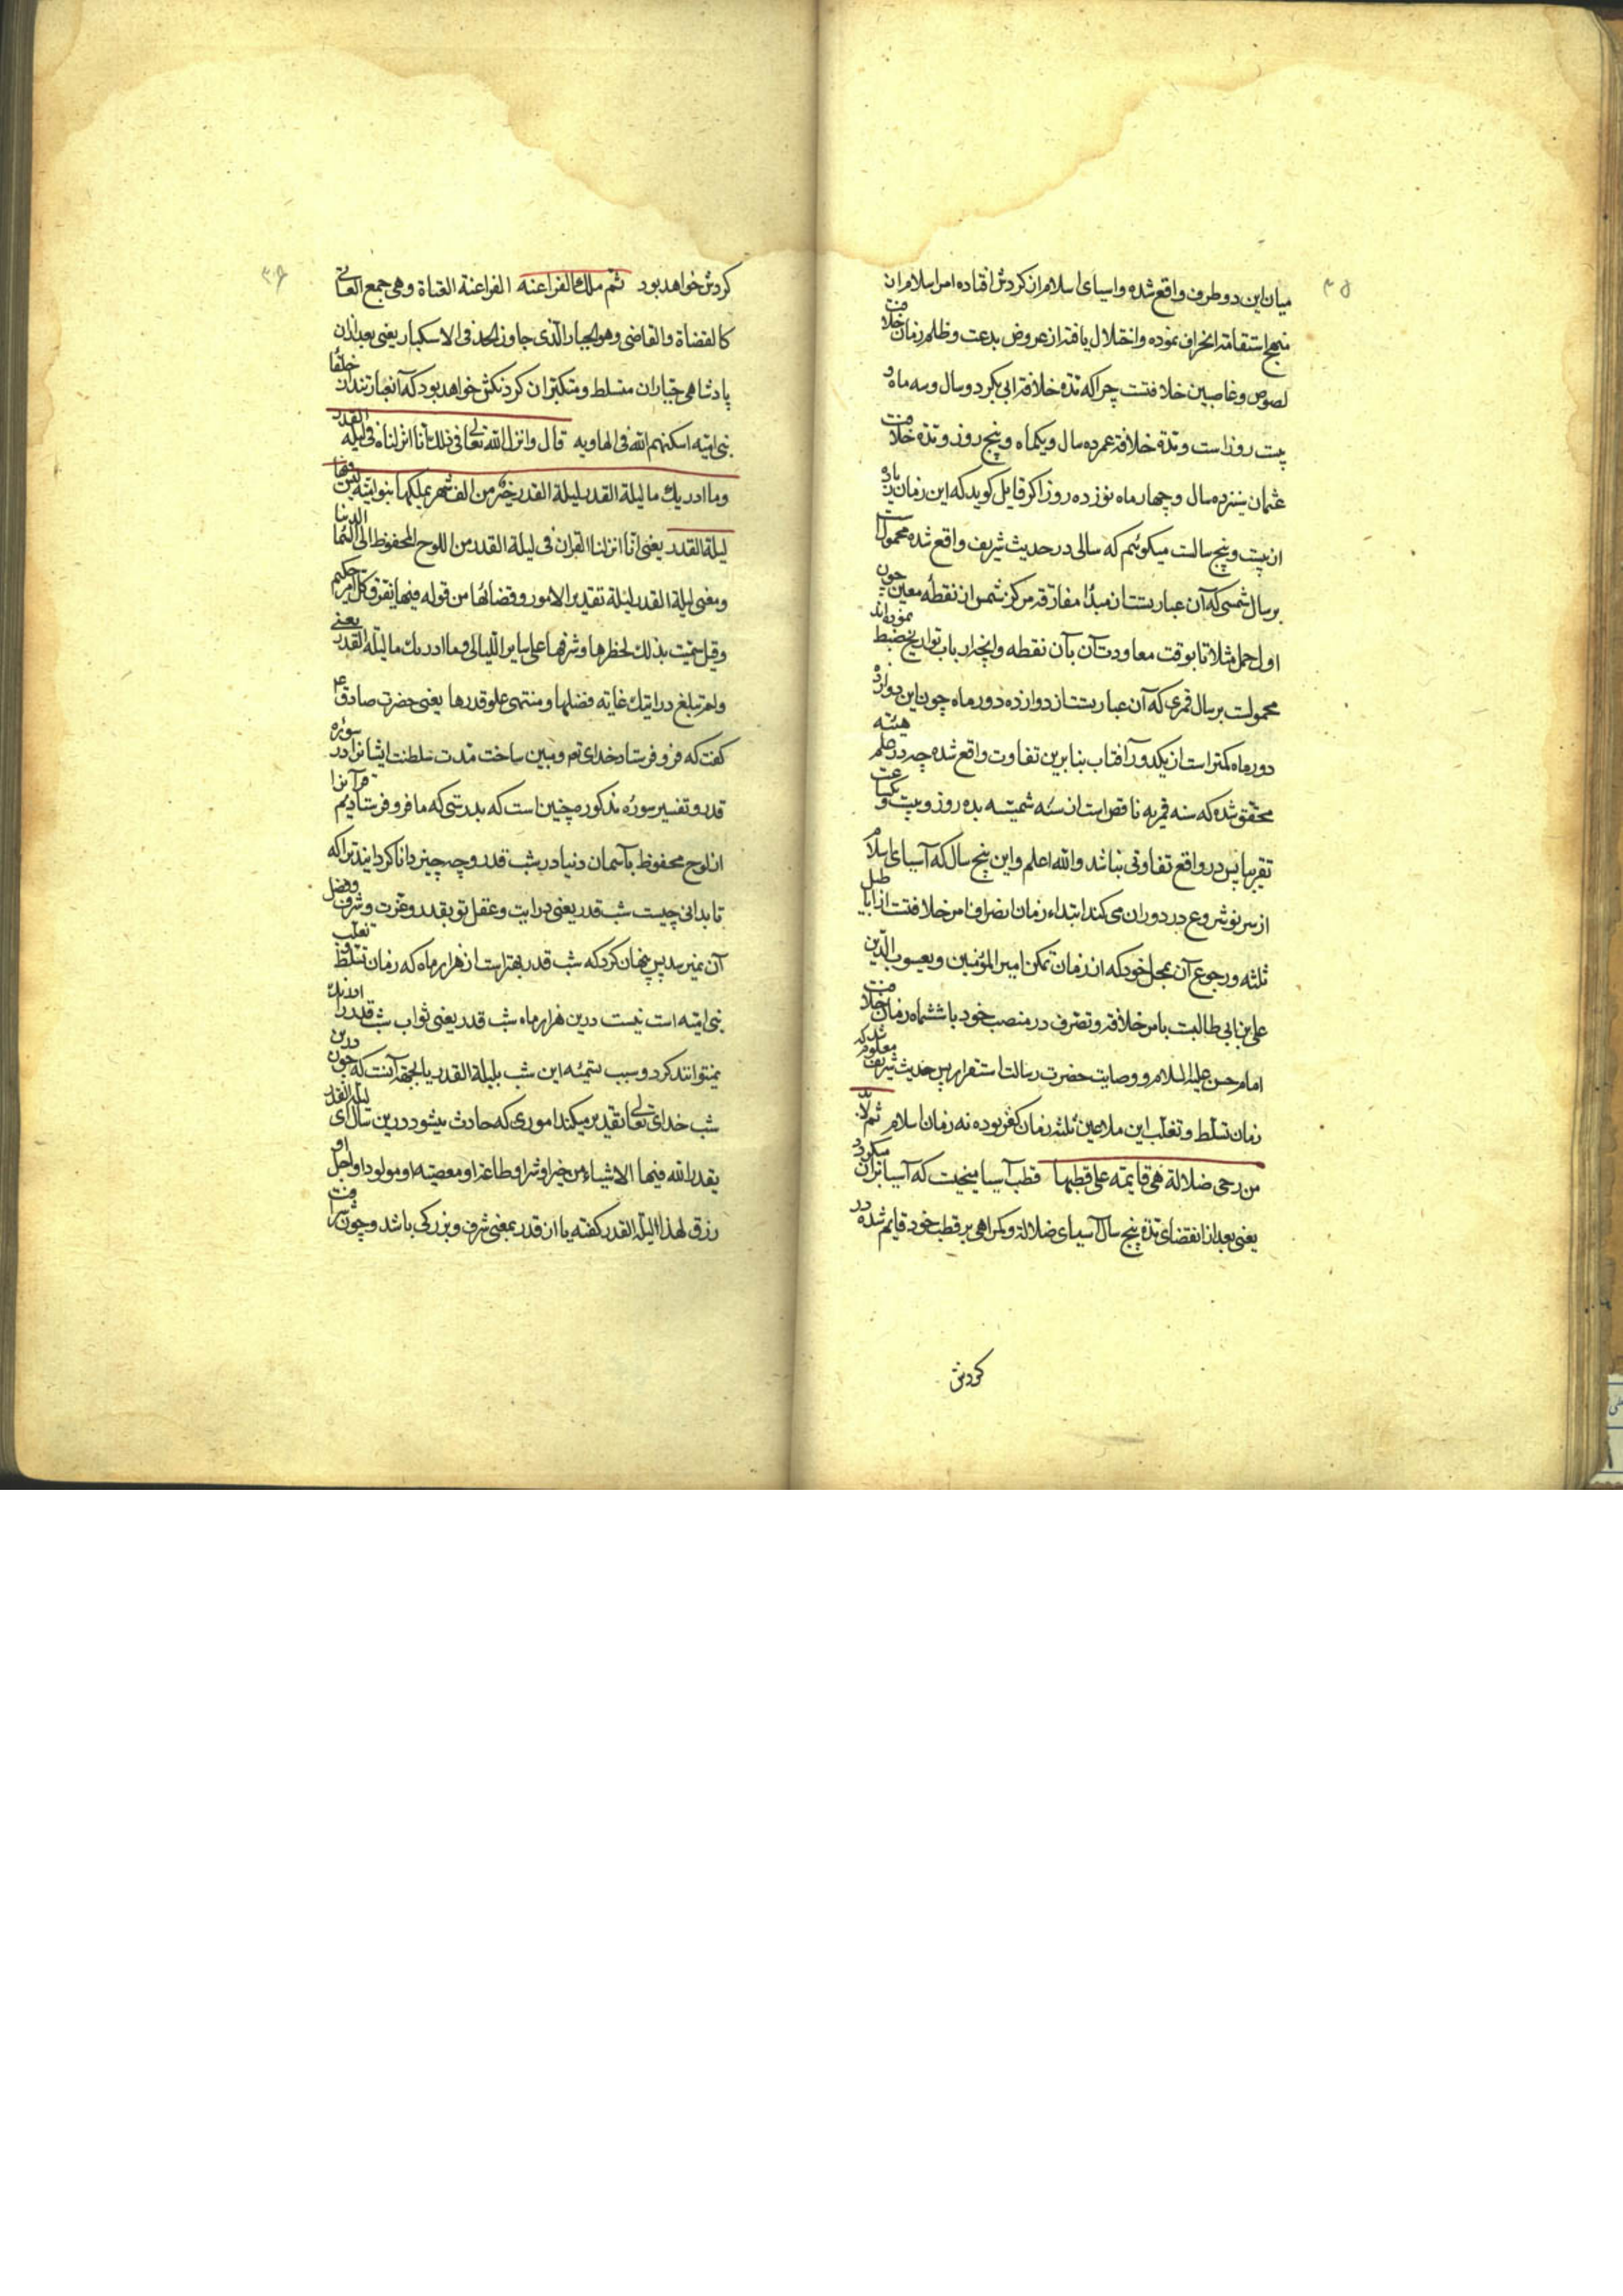 ۳۵
میان این دو طرف واقع شده و اسیای اسلام از کردش افتاده امر اسلام از
منهج استقامة انحراف نموده و اختلال یافته از عروض بدعت و ظلم زمان خلافت
لصوص و غاصبین خلافتست چرا که مدة خلافة ابی بکر دو سال و سه ماه و
بیست روز است و مدة خلافة عمر ده سال و یکماه و پنج روز و مدة خلافت
عثمان سیزده سال و چهار ماه نوزده روز اکر قایل کوید که این زمان زیاده
از بیست و پنج سالست میکوئیم که سالی در حدیث شریف واقع شده محمولست
بر سال شمسی که آن عبارتست از مبدأ مفارقه مرکز شمس از نقطه معین چون
اول حمل مثلا تا بوقت معاودت آن بآن نقطه و آنچه ارباب تواریخ ضبط نموده‌اند
محمولست بر سال قمری که آن عبارتست از دوازده دور ماه چون این دوازده
دور ماه کمتر است از یکدور آفتاب بنابرین تفاوت واقع شده چه در علم هیئة
محقق شده که سنه قمریه ناقص است از سنه شمسیه بده روز و بیست و یکساعت
تقریبا پس در واقع تفاوتی نباشد والله اعلم و این پنج سال که آسیای اسلام
از سر نو شروع در دوران می کند ابتداء زمان انصراف امر خلافتست از اباطیل
ثلثه و رجوع آن بمحل خود که از زمان تمکن امیر المؤمنین و یعسوب الدین
علی بن ابی طالبست بامر خلافة و تصرف در منصب خود با ششماه زمان خلافت
امام حسن علیه السلام و وصایت حضرت رسالت است قرار پس حدیث شریف معلوم شد که
زمان تسلط و تغلب این ملاعین ثلثه زمان کفر بوده نه زمان اسلام ثم لابد
من رحی ضلالة هی قایمه علی قطبها قطب آسیا میخیست که آسیا بران میکردد
یعنی بعد از انقضای مدة پنج سال آسیای ضلالة و کمراهی بر قطب خود قایم شده در
کردش
۳۶
کردش خواهد بود ثم ملک الفراعنه الفراعنة العتاة وهی جمع العاتی
کالقضاة والقاضی وهو الجبار الذی جاوز الحد فی الاستکبار یعنی بعد ازان
پادشاهی جباران متسلط و متکبران کردنکش خواهد بود که آنعبارتند از خلفأ
بنی امیه اسکنهم الله فی الهاویه قال وانزل الله تعالی فی ذلک انا انزلناه فی لیلة القدر
وما ادریک ما لیلة القدر لیلة القدر خیر من الف شهر یملکها بنو امیه لیس فیها
لیلة القدر یعنی انا انزلنا القران فی لیلة القدر من اللوح المحفوظ الی السماء الدنیا
ومعنی لیلة القدر لیلة تقدیر الامور وقضائها من قوله فیها یفرق کل امر حکیم
وقیل سمیت بذلک لخطرها وشرفها علی سایر اللیالی وما ادریک ما لیلة القدر یعنی
ولم تبلغ درایتک غایة فضلها ومنتهی علو قدرها یعنی حضرت صادق ع
کفت که فرو فرستاد خدای تع و مبین ساخت مدت سلطنت ایشانرا در سوره
قدر و تفسیر سوره مذکوره چنین است که بدرستی که ما فرو فرستادیم قرآنرا
از لوح محفوظ بآسمان دنیا در شب قدر و چه چیز دانا کردانید ترا که
تا بدانی چیست شب قدر یعنی درایت و عقل تو بقدر و عزت و شرف و فضل
آن نمیرسد پس بیان کرد که شب قدر بهتر است از هزار ماه که زمان تسلط و تغلب
بنی امیه است نیست درین هزار ماه شب قدر یعنی ثواب شب قدر را
نمیتوانند کرد و سبب تسمیه این شب بلیلة القدر یا بجهة آنست که چون درین
شب خدای تعالی تقدیر میکند اموری که حادث میشود درین سال ای لیلة القدر
یقدر الله فیها الاشیاء من خیر او شر او طاعة او معصیة او مولود او اجل او
رزق لهذا لیلة القدر کفته یا از قدر بمعنی شرف و بزرکی باشد و چون